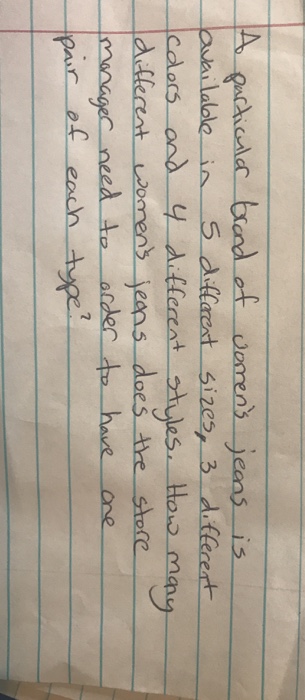 A particular brand of women's jeans is
available in 5 different sizes, 3 different
colors and 4 different styles. How many
different women's jeans does the store
manager need to order to have one
pair of each type?